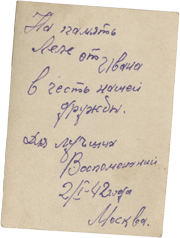 На память
Леле от Ивана
в честь нашей
дружбы.
Для лучших
Воспоминаний
2/I-42 года
Москва.